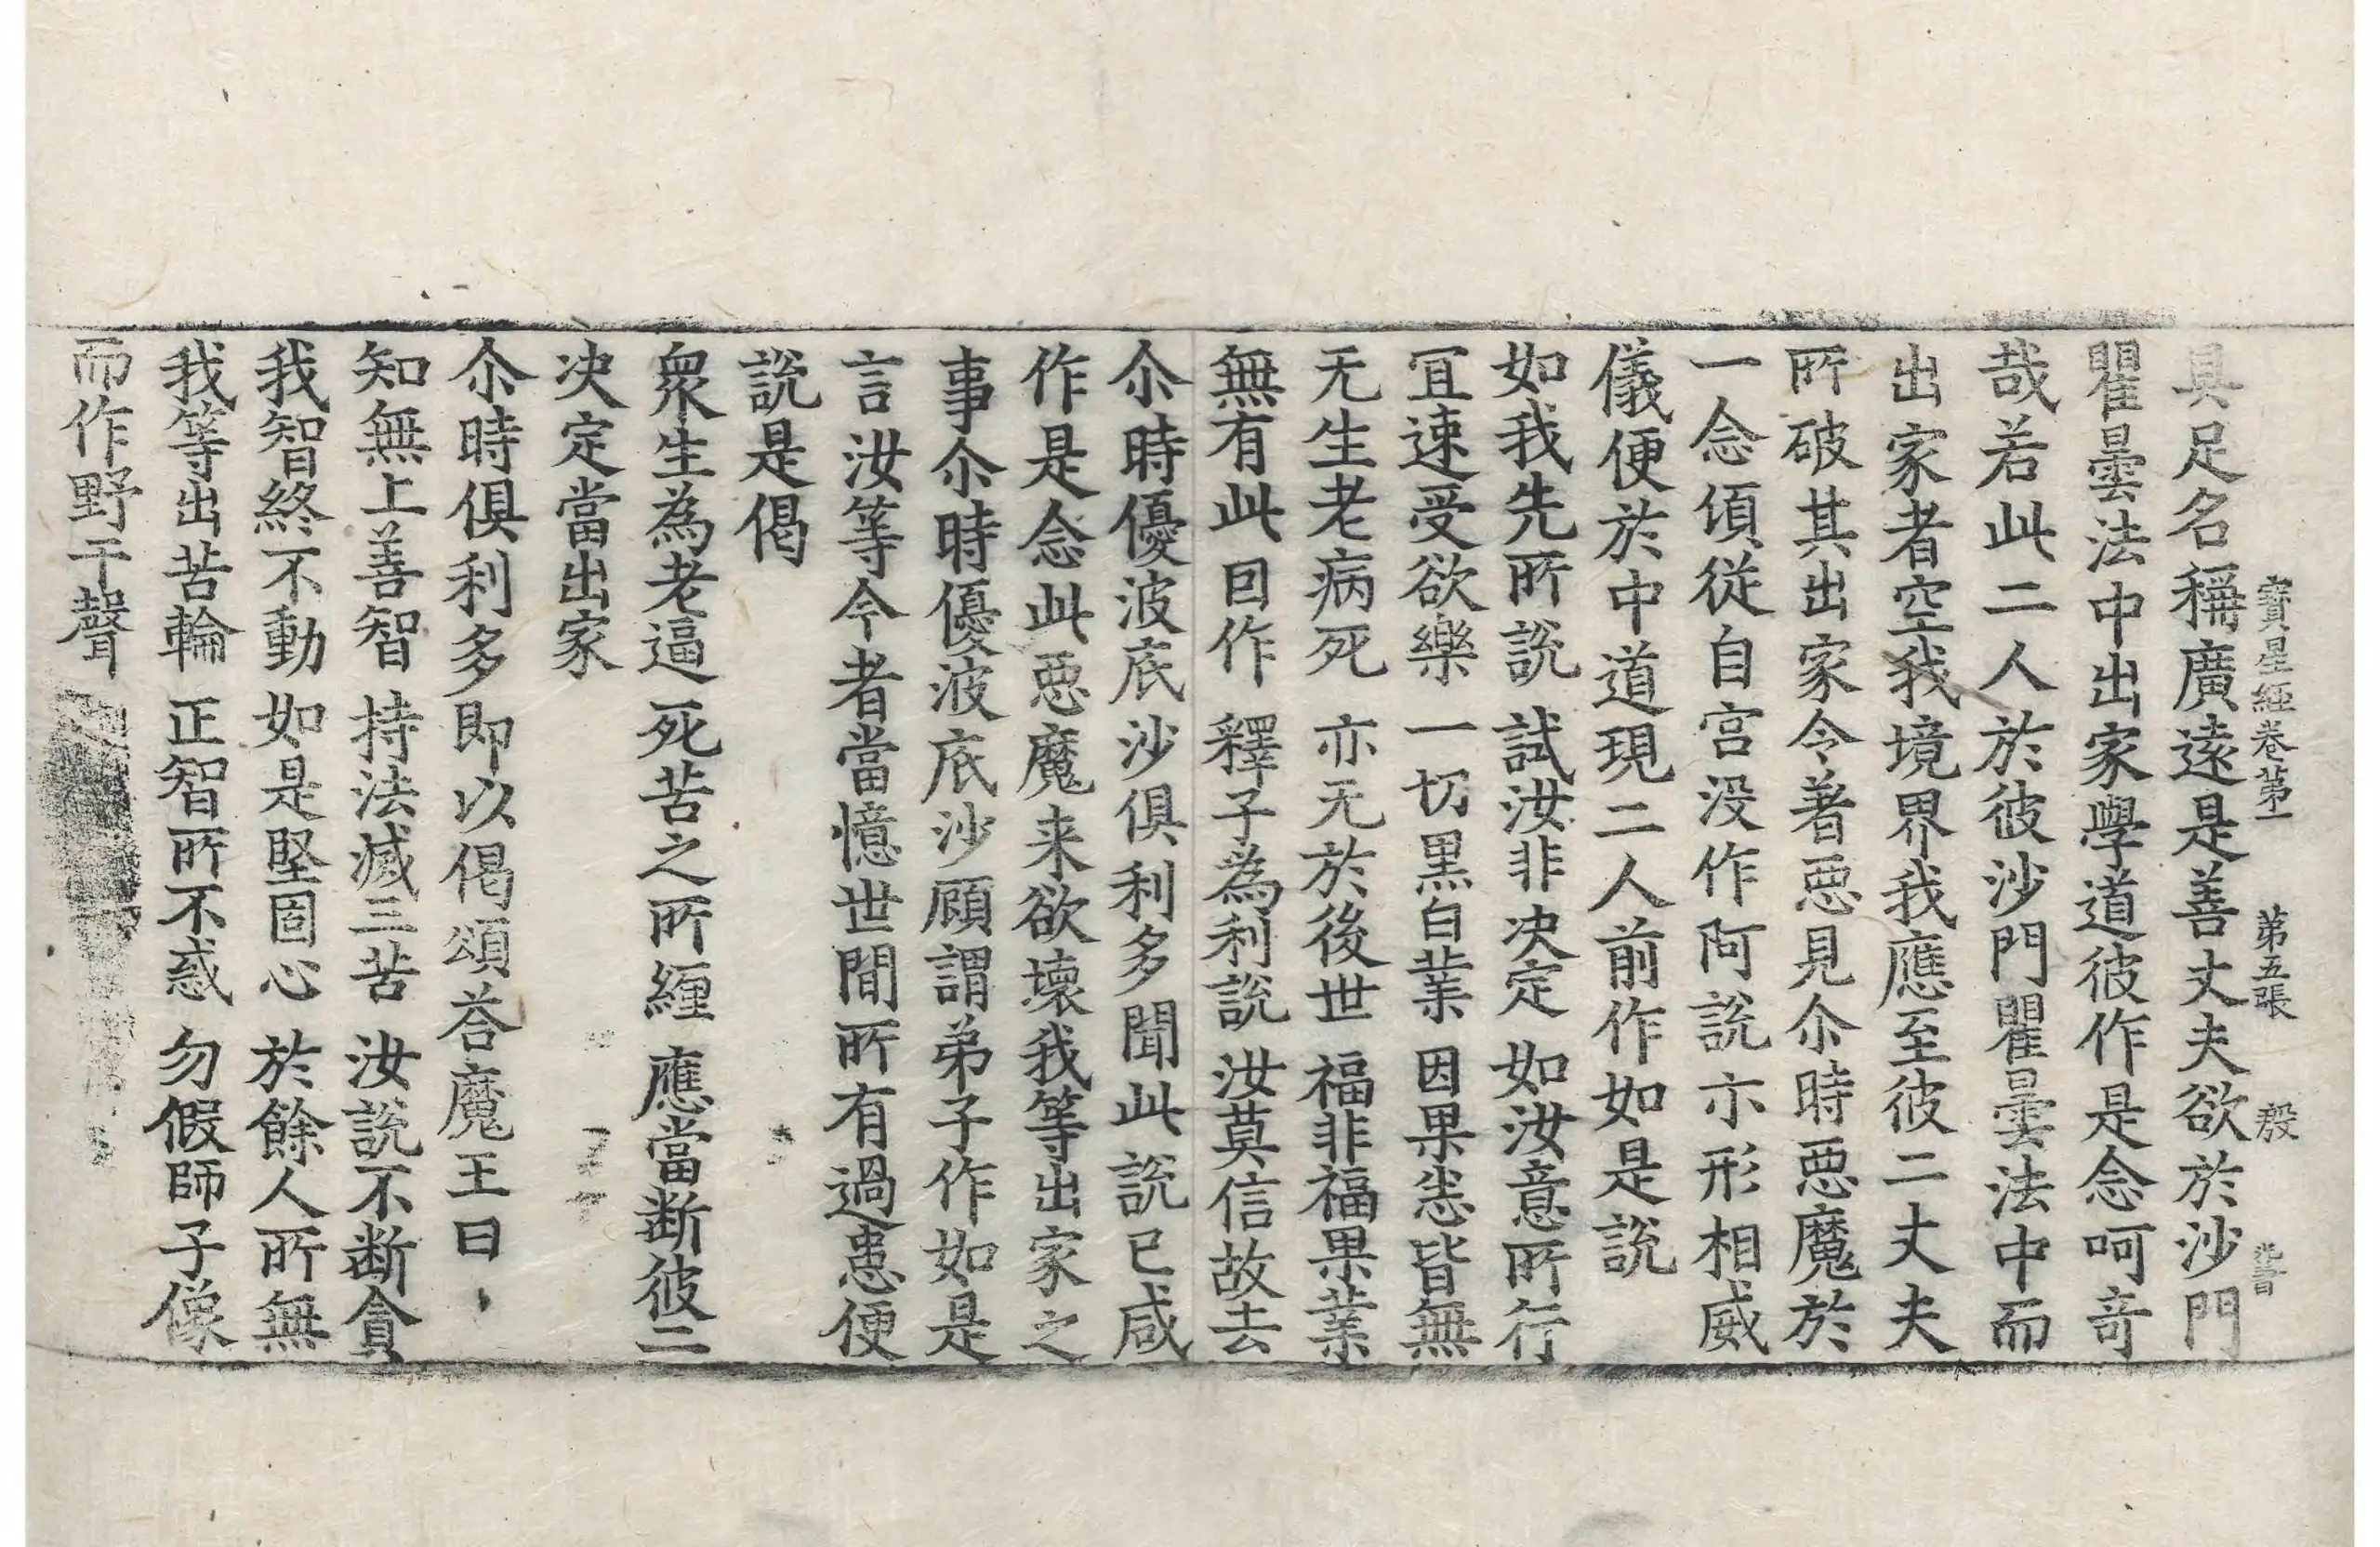 寶星經卷第一　第五張　殷
具足名稱廣遠是善丈夫欲於沙門
瞿曇法中出家學道彼作是念呵奇
哉若此二人於彼沙門瞿曇法中而
出家者空我境界我應至彼二丈夫
所破其出家令著惡見尒時惡魔於
一念傾從自宮没作阿說示形相威
儀便於中道現二人前作如是說
如我先所說　試汝非決定　如汝意所行
冝速受欲樂　一切黒白業　因果悉皆無
无生老病死　亦无於後世　福非福果業
無有此囙作　釋子為利說　汝莫信故去
尒時優波底沙俱利多聞此說已咸
作是念此惡魔来欲壞我等出家之
事尒時優波底沙顧謂弟子作如是
言汝等今者當憶世間所有過患便
說是偈
衆生為老逼　死苦之所纏　應當断彼二
決定當出家
尒時俱利多即以偈頌荅魔王曰
知無上善智　持法滅三苦　汝說不断貪
我智終不動　如是堅固心　於餘人所無
我等出苦輪　正智所不惑　勿假師子像
而作野干聲